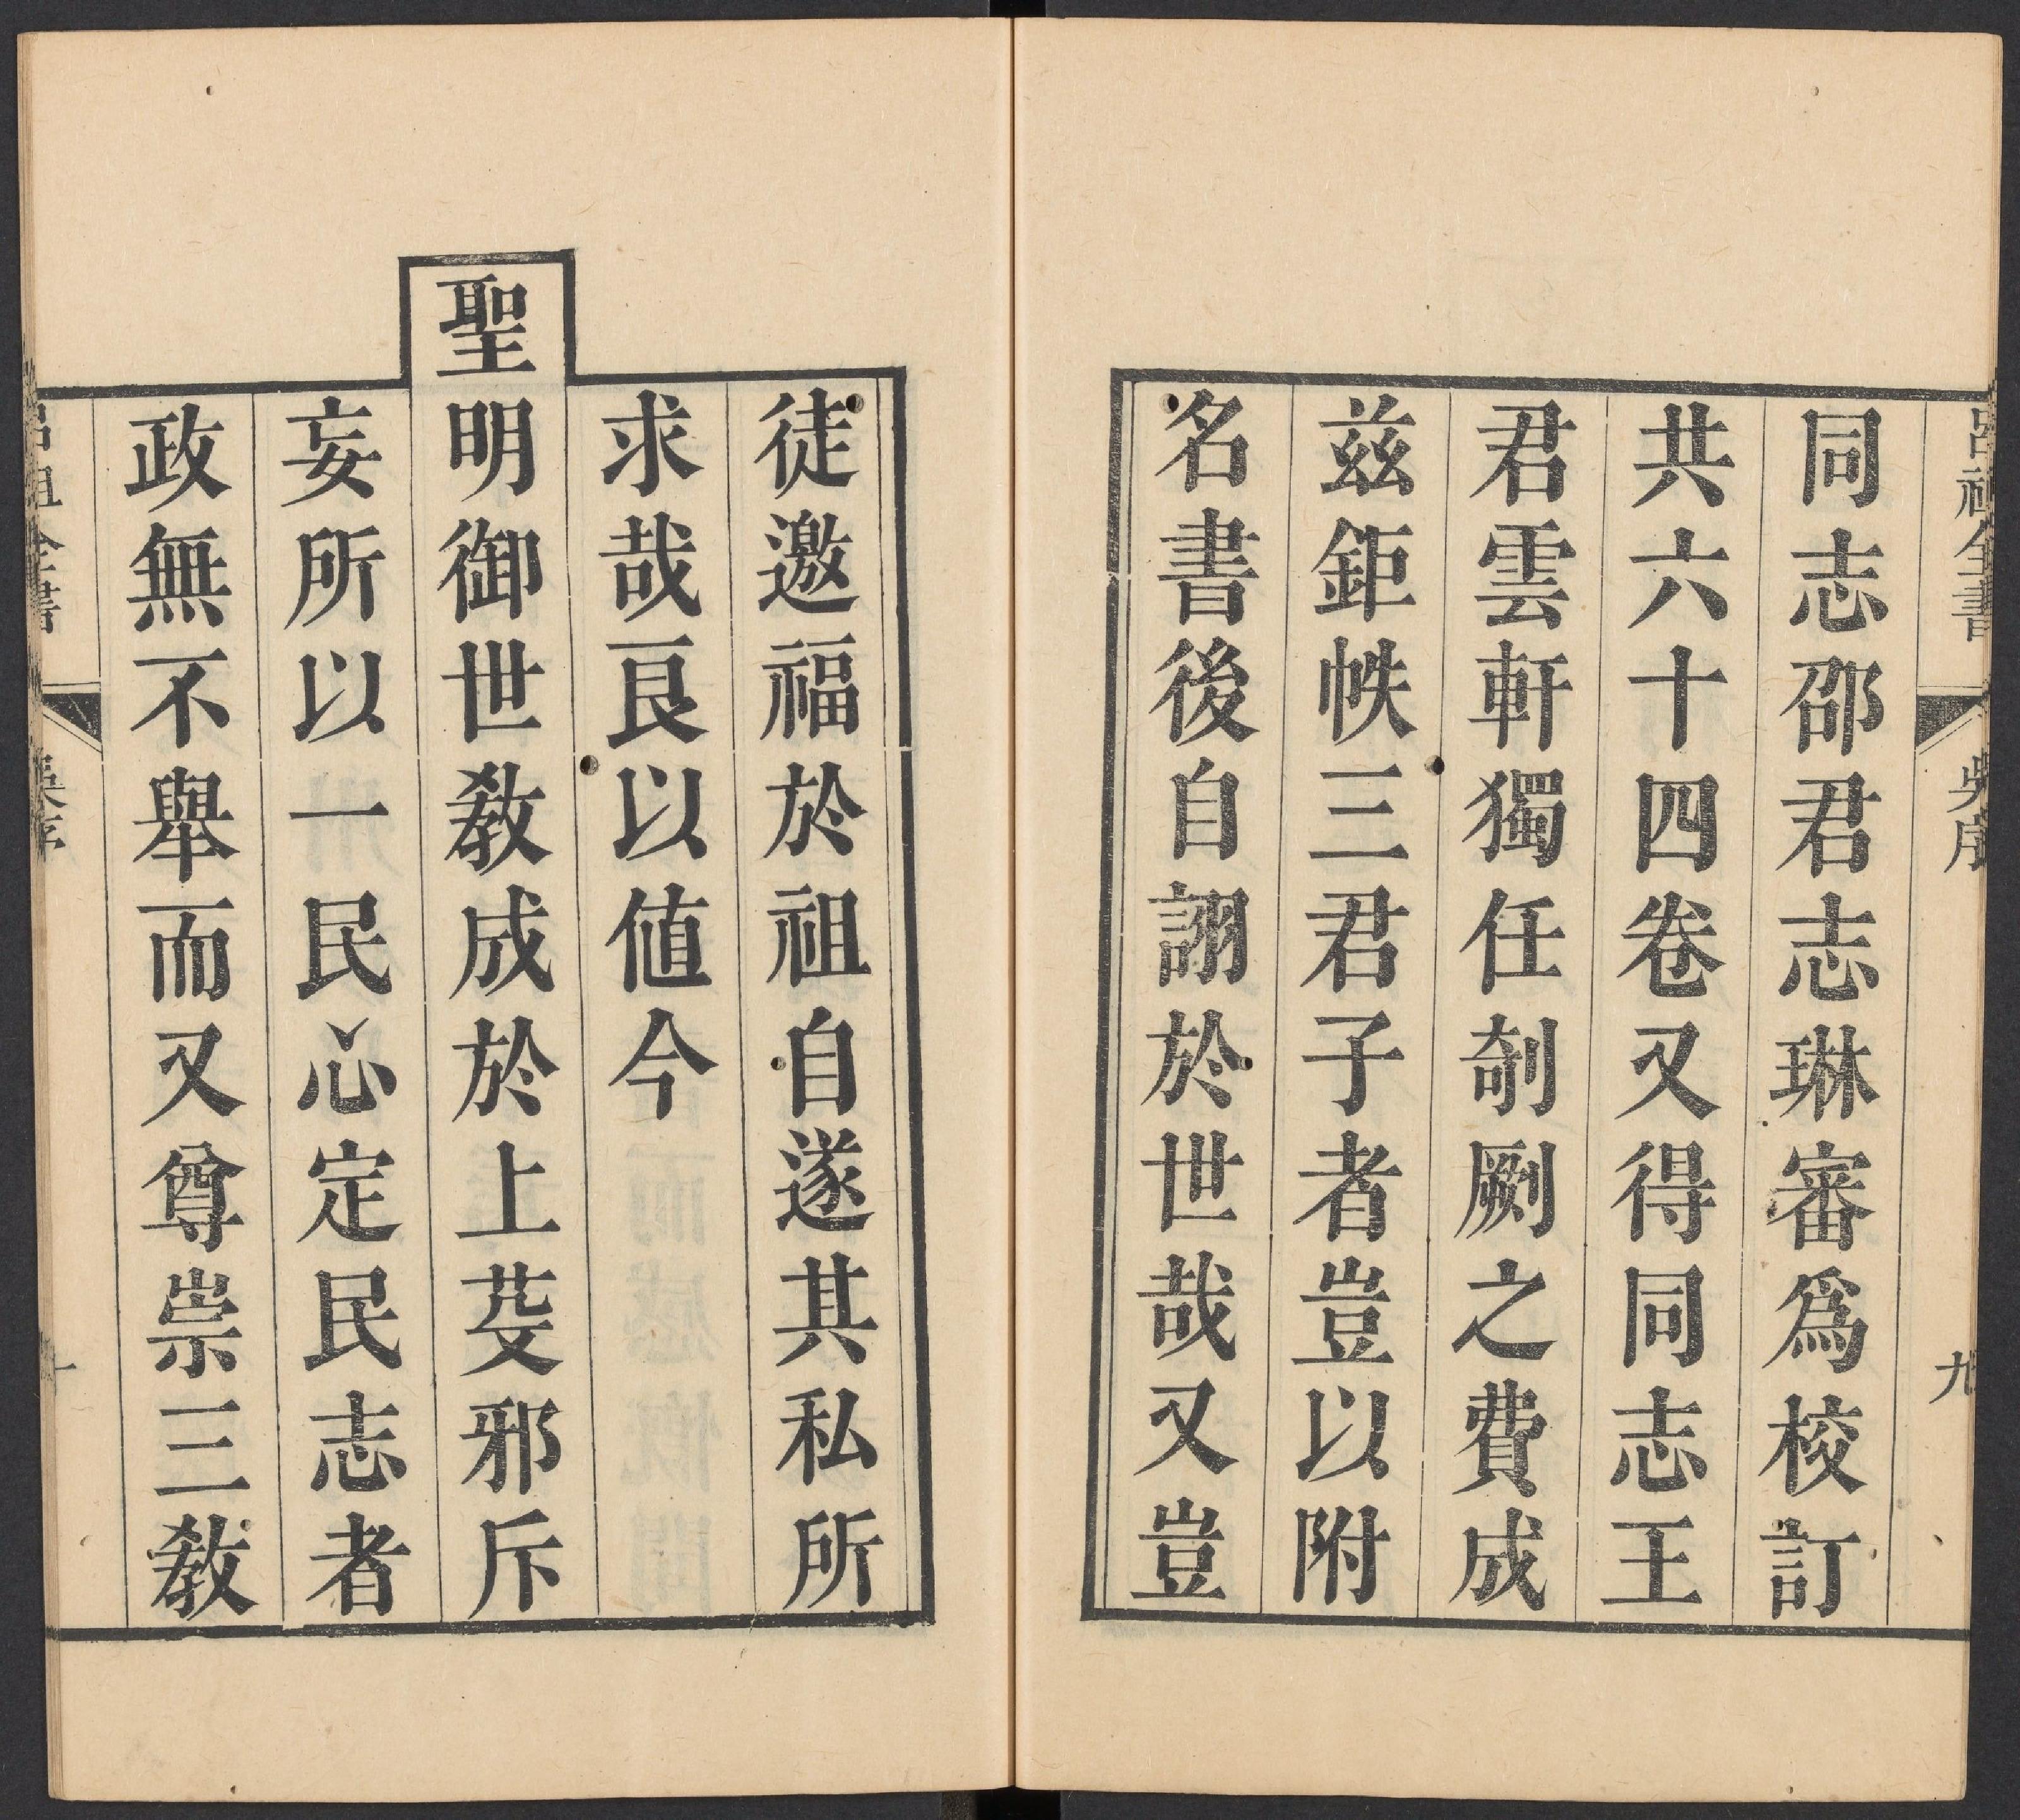 呂祖全書 吳序 九
同志邵君志琳審爲校訂
共六十四卷又得同志王
君雲軒獨任剞劂之費成
兹鉅帙三君子者豈以附
名書後自詡於世哉又豈
徒邀福於祖自遂其私所
求哉良以値今
聖明御世教成於上芟邪斥
妄所以一民心定民志者
政無不舉而又尊崇三教
呂祖全書 吳序 十